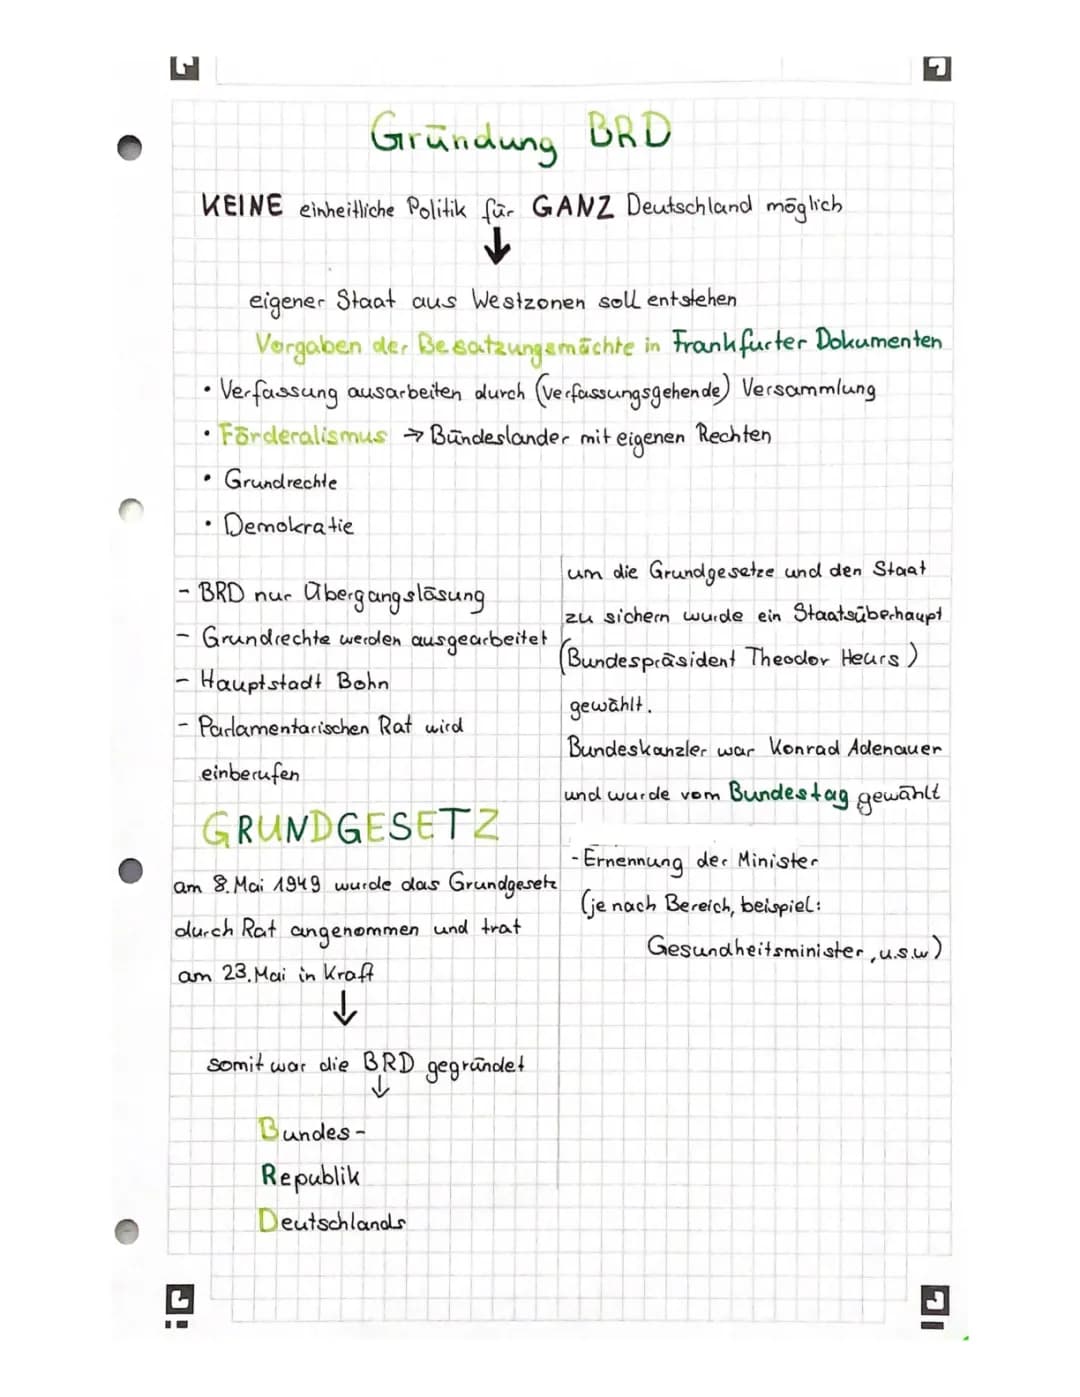 Gründung BRD
KEINE einheitliche Politik für GANZ Deutschland möglich
↓
eigener Staat aus Westzonen soll entstehen
Vorgaben der Besatzungsmächte in Frankfurter Dokumenten
• Verfassung ausarbeiten durch (verfassungsgehende) Versammlung
• Förderalismus → Bündeslander mit eigenen Rechten
• Grundrechte
• Demokratie
- BRD nur Übergangslösung
- Grundrechte werden ausgearbeitet
- Hauptstadt Bohn
- Parlamentarischen Rat wird
einberufen
GRUNDGESETZ
am 8. Mai 1949 wurde das Grundgesetz
durch Rat angenommen und trat
am 23. Mai in Kraft
↓
somit war die BRD gegründet
↓
Bundes-
Republik
Deutschlands
um die Grundgesetze und den Staat
zu sichern wurde ein Staatsüberhaupt
(Bundespräsident Theodor Heurs)
gewählt.
Bundeskanzler war Konrad Adenauer
und wurde vom Bundestag gewählt
- Ernennung der Minister
(je nach Bereich, beispiel:
Gesundheitsminister, u.s.w)